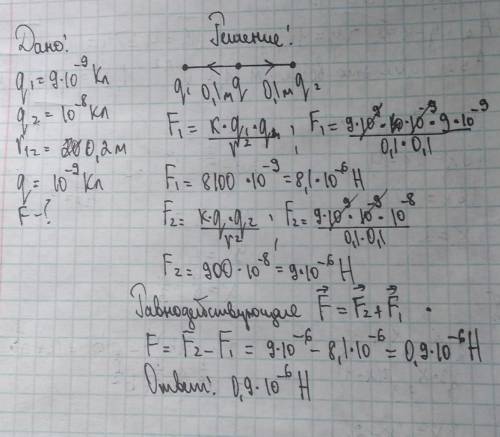 Дано:
q1 = 9·10⁻⁹ Кл
q2 = 10⁻⁸ Кл
r12 = 0,2 м
q = 10⁻⁹ Кл
F - ?
Решение:
q1 0,1м q 0,1м q2
F1 = K·q1·q / r² ; F1 = 9·10⁹·10⁻⁹·9·10⁻⁹ / 0,1·0,1
F1 = 8100·10⁻⁹ = 8,1·10⁻⁶ Н
F2 = K·q·q2 / r² ; F2 = 9·10⁹·10⁻⁹·10⁻⁸ / 0,1·0,1
F2 = 900·10⁻⁸ = 9·10⁻⁶ Н
Равнодействующие F⃗ = F⃗2 + F⃗1
F = F2 - F1 = 9·10⁻⁶ - 8,1·10⁻⁶ = 0,9·10⁻⁶ Н
Ответ: 0,9·10⁻⁶ Н